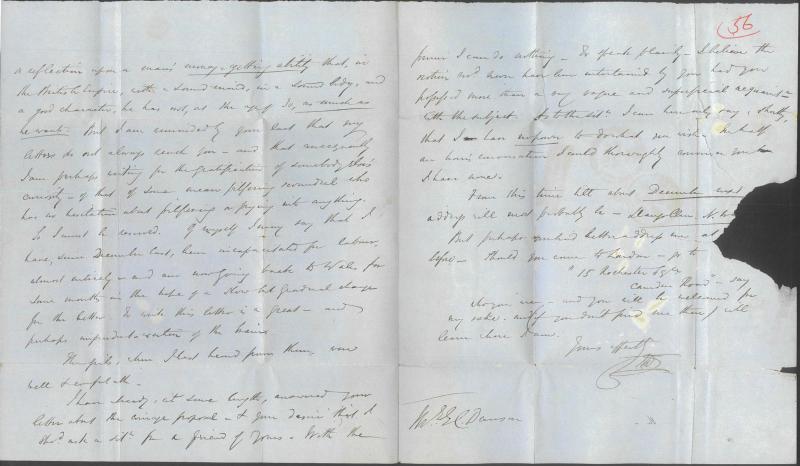 a reflection upon a man's money-getting ability that, in
the British Empire, with a sound mind, in a sound body, and
a good character, he has not, at the age of 30, as much as
he wants. But I am reminded by your last that my
letters do not always reach you - and that consequently
I am perhaps writing for the gratification of somebody else's
curiosity - of that of some mean pilfering scoundrel who
has no hesitation about pilfering or prying into anything.
So I must be reserved. Of myself I may say that I
have, since December last, been incapacitated for labour,
almost entirely - and am now going back to Wales for
some months in the hope of a slow but gradual change
for the better. To write this letter is a great - and
perhaps imprudent exertion of the brain.
The girls, when I last heard from them, were
well &
I have already, at some length, answered your
letter about the proposal - & your desire that I
shd. ask a sitn. for a friend of yours. With the
former I can do nothing - To speak plainly - I believe the
notion wd. never have been entertained by you had you
possessed more than a very vague and superficial acquaintce.
with the subject. As to the sitn. I can here only say, shortly,
that I have no power to do what you wish. In half
an hour's conversation I could thoroughly convince you
I have none.
From this time till about December next
address will most probably be - N. W
But perhaps you had better address me - at
before - Should you come to London - go to
"15 Rochester Sqre.
Camden Road" - say
who you are, - and you will be welcomed for
my sake - and if you don't find me there, will
learn where I am.
Yours affectly.
C. Dawson
56